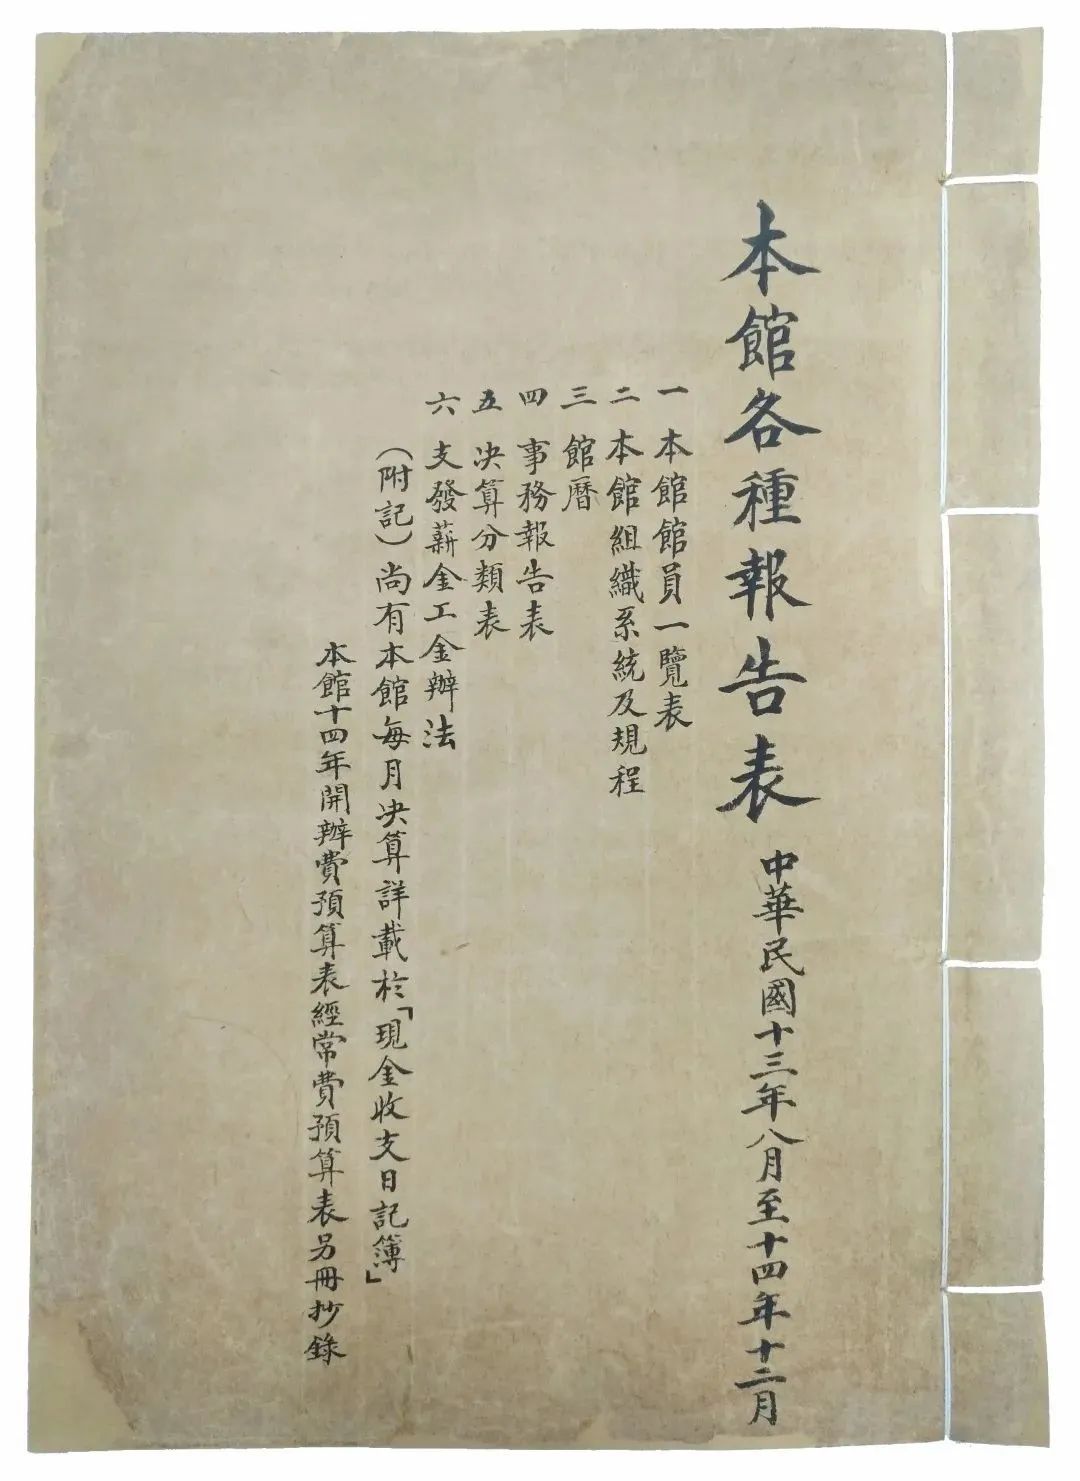 本館各種報告表 中華民國十三年八月至十四年十二月
一 本館館員一覽表
二 本館組織系統及規程
三 館曆
四 事務報告表
五 決算分類表
六 支發薪金工金辦法
（附記）尚有本館每月決算詳載於「現金收支日記簿」
本館十四年開辦費預算表經常費預算表另冊抄錄